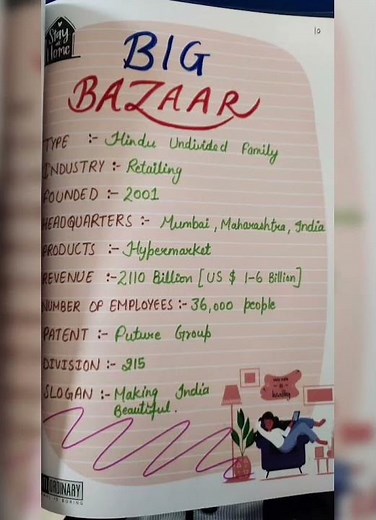 Stay
at
Home
10
BIG
BAZAAR
TYPE :- Hindu Undivided Family
INDUSTRY :- Retailing
FOUNDED :- 2001
HEADQUARTERS :- Mumbai, Maharashtra, India
PRODUCTS :- Hypermarket
REVENUE :- 2110 Billion [US $ 1-6 Billion]
NUMBER OF EMPLOYEES :- 36,000 people
PATENT :- Puture Group
DIVISION :- 215
SLOGAN :- Making India
Beautiful.
healthy
ORDINARY
BORING